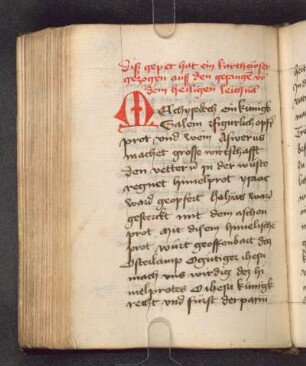 Diß gepet hat ein kartheüser
gezogen auß den gesange vo
dem heiligen leichna
Melchysedech ein kunigk
Salem figurlich opfert
prot und wein Aswerus
machet grosse wirtschafft
den vettern in der wüste
regnet himelprot ysaac
ward geopfert helyas ward
gesterckt mit dem aschen
prot mit disem himelische
prot wurt geoffenbart das
Osterlamp O gutiger ihesu
mach uns wirdig des hi
melprotes O ihesu kunigk
recht und fürst der parm